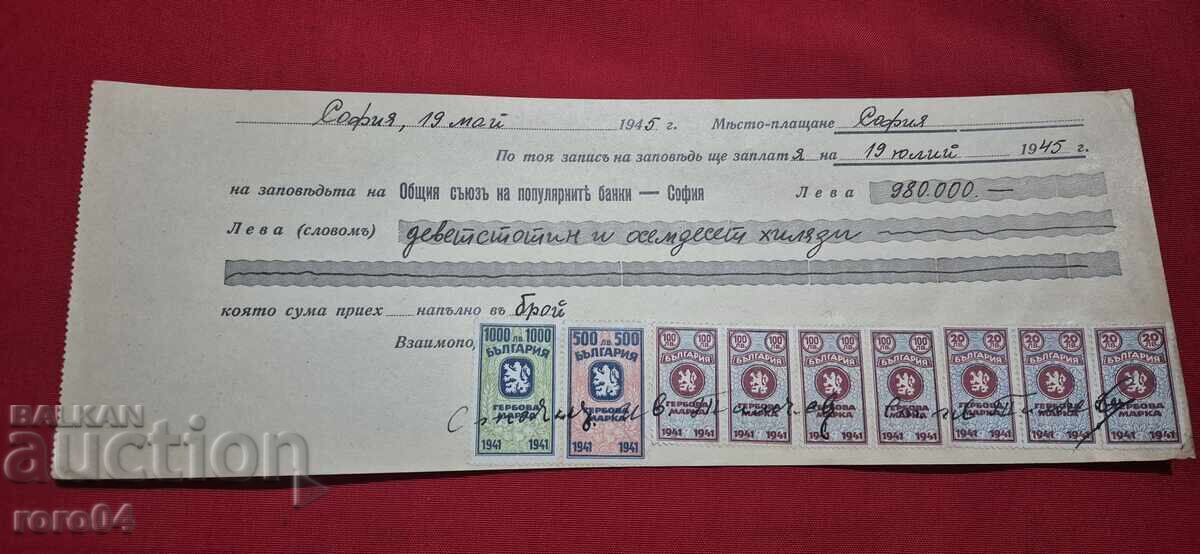 София, 19 май 1945 г. Мѣсто-плащане София
По тоя записъ на заповѣдь ще заплатя на 19 юлий 1945 г.
на заповѣдьта на Общия съюзъ на популярнитѣ банки — София Лева 980.000.—
Лева (словомъ) деветстотин и осемдесет хиляди
която сума приех напълно въ брой
Взаимопо
1000 лв 1000 500 лв 500 100 лв. 100 лв. 100 лв. 100 лв. 100 лв. 100 лв. 100 лв. 100 лв. 20 лв. 20 лв. 20 лв. 20 лв. 20 лв. 20 лв.
БЪЛГАРИЯ БЪЛГАРИЯ БЪЛГАРИЯ БЪЛГАРИЯ БЪЛГАРИЯ БЪЛГАРИЯ БЪЛГАРИЯ БЪЛГАРИЯ БЪЛГАРИЯ
ГЕРБОВА МАРКА ГЕРБОВА МАРКА ГЕРБОВА МАРКА ГЕРБОВА МАРКА ГЕРБОВА МАРКА ГЕРБОВА МАРКА ГЕРБОВА МАРКА ГЕРБОВА МАРКА ГЕРБОВА МАРКА
1941 1941 1941 1941 1941 1941 1941 1941 1941 1941 1941 1941 1941 1941 1941 1941 1941 1941
BALKAN
auction
roro04